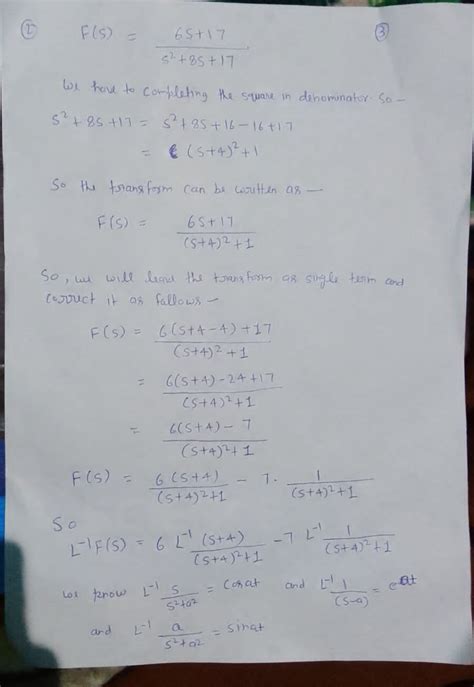 ② F(s) = 6s+17 / s²+8s+17 ③
We have to completing the square in denominator. So –
s²+8s+17 = s²+8s+16-16+17
= (s+4)²+1
So the transform can be written as —
F(s) = 6s+17 / (s+4)²+1
So, we will leave the transform as single term and
correct it as follows –
F(s) = 6(s+4-4)+17 / (s+4)²+1
= 6(s+4)-24+17 / (s+4)²+1
= 6(s+4)-7 / (s+4)²+1
F(s) = 6(s+4) / (s+4)²+1 - 7. 1 / (s+4)²+1
So
L⁻¹F(s) = 6 L⁻¹ (s+4) / (s+4)²+1 - 7 L⁻¹ 1 / (s+4)²+1
we know L⁻¹ s / s²+a² = cosat and L⁻¹ 1 / (s-a) = eat
and L⁻¹ a / s²+a² = sinat